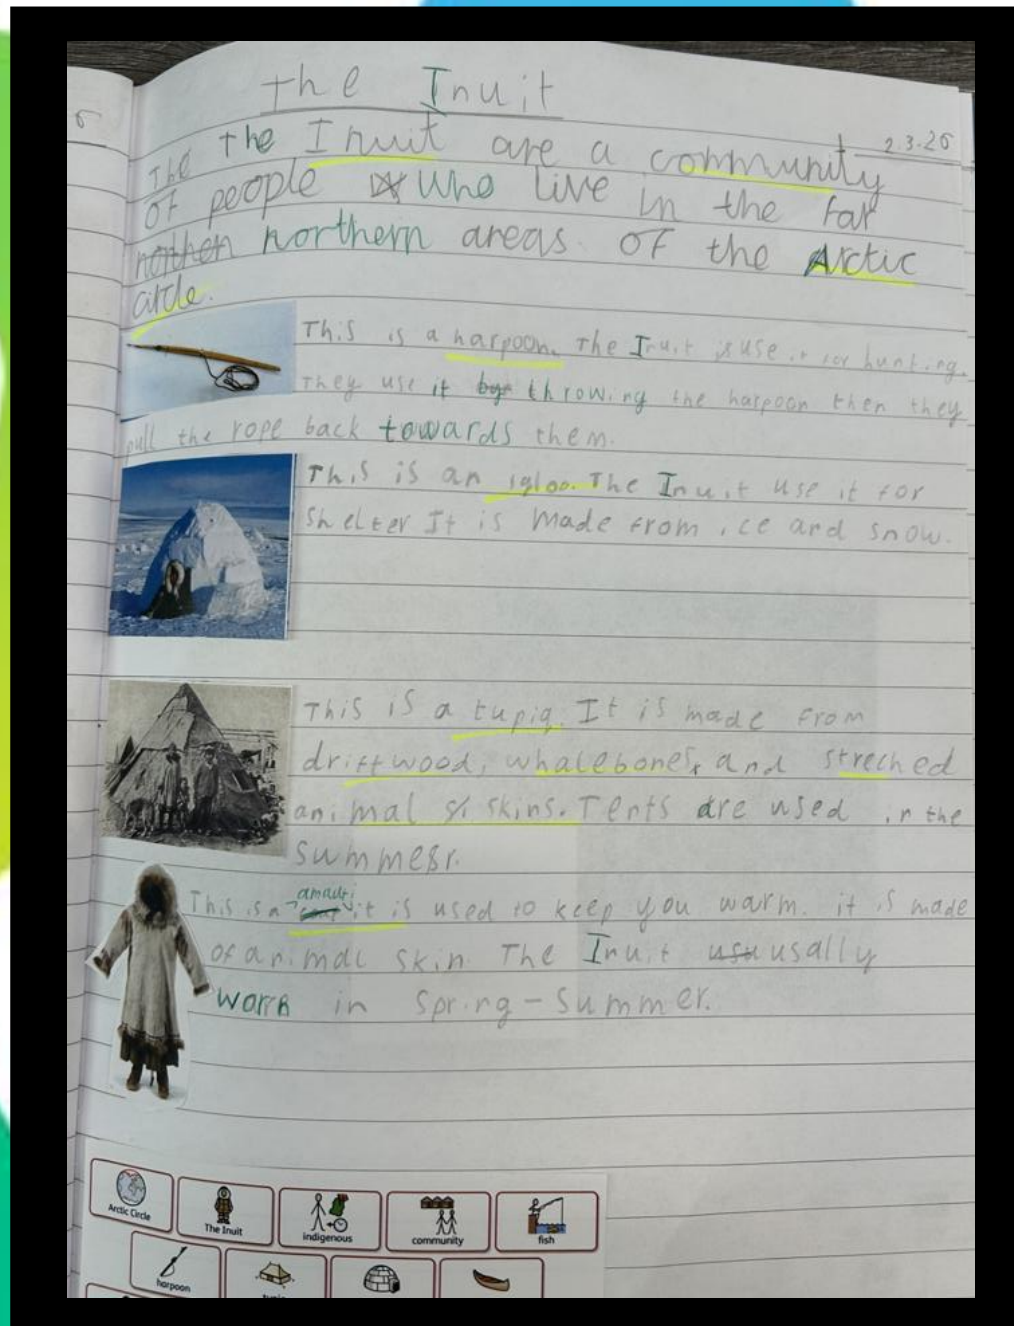 The Inuit
2.3.26
The The Inuit are a community
of people who live in the far
northen northern areas of the Arctic
circle.
This is a harpoon. The Inuit use it for hunting.
They use it by throwing the harpoon then they
pull the rope back towards them.
This is an igloo. The Inuit use it for
shelter It is made from ice and snow.
This is a tupiq. It is made from
driftwood, whalebones, and streched
animal skins. Tents are used in the
summer.
This is a amauti it is used to keep you warm. it is made
of animal skin The Inuit usually
worn in Spring-Summer.
Arctic Circle
The Inuit
indigenous
community
fish
harpoon